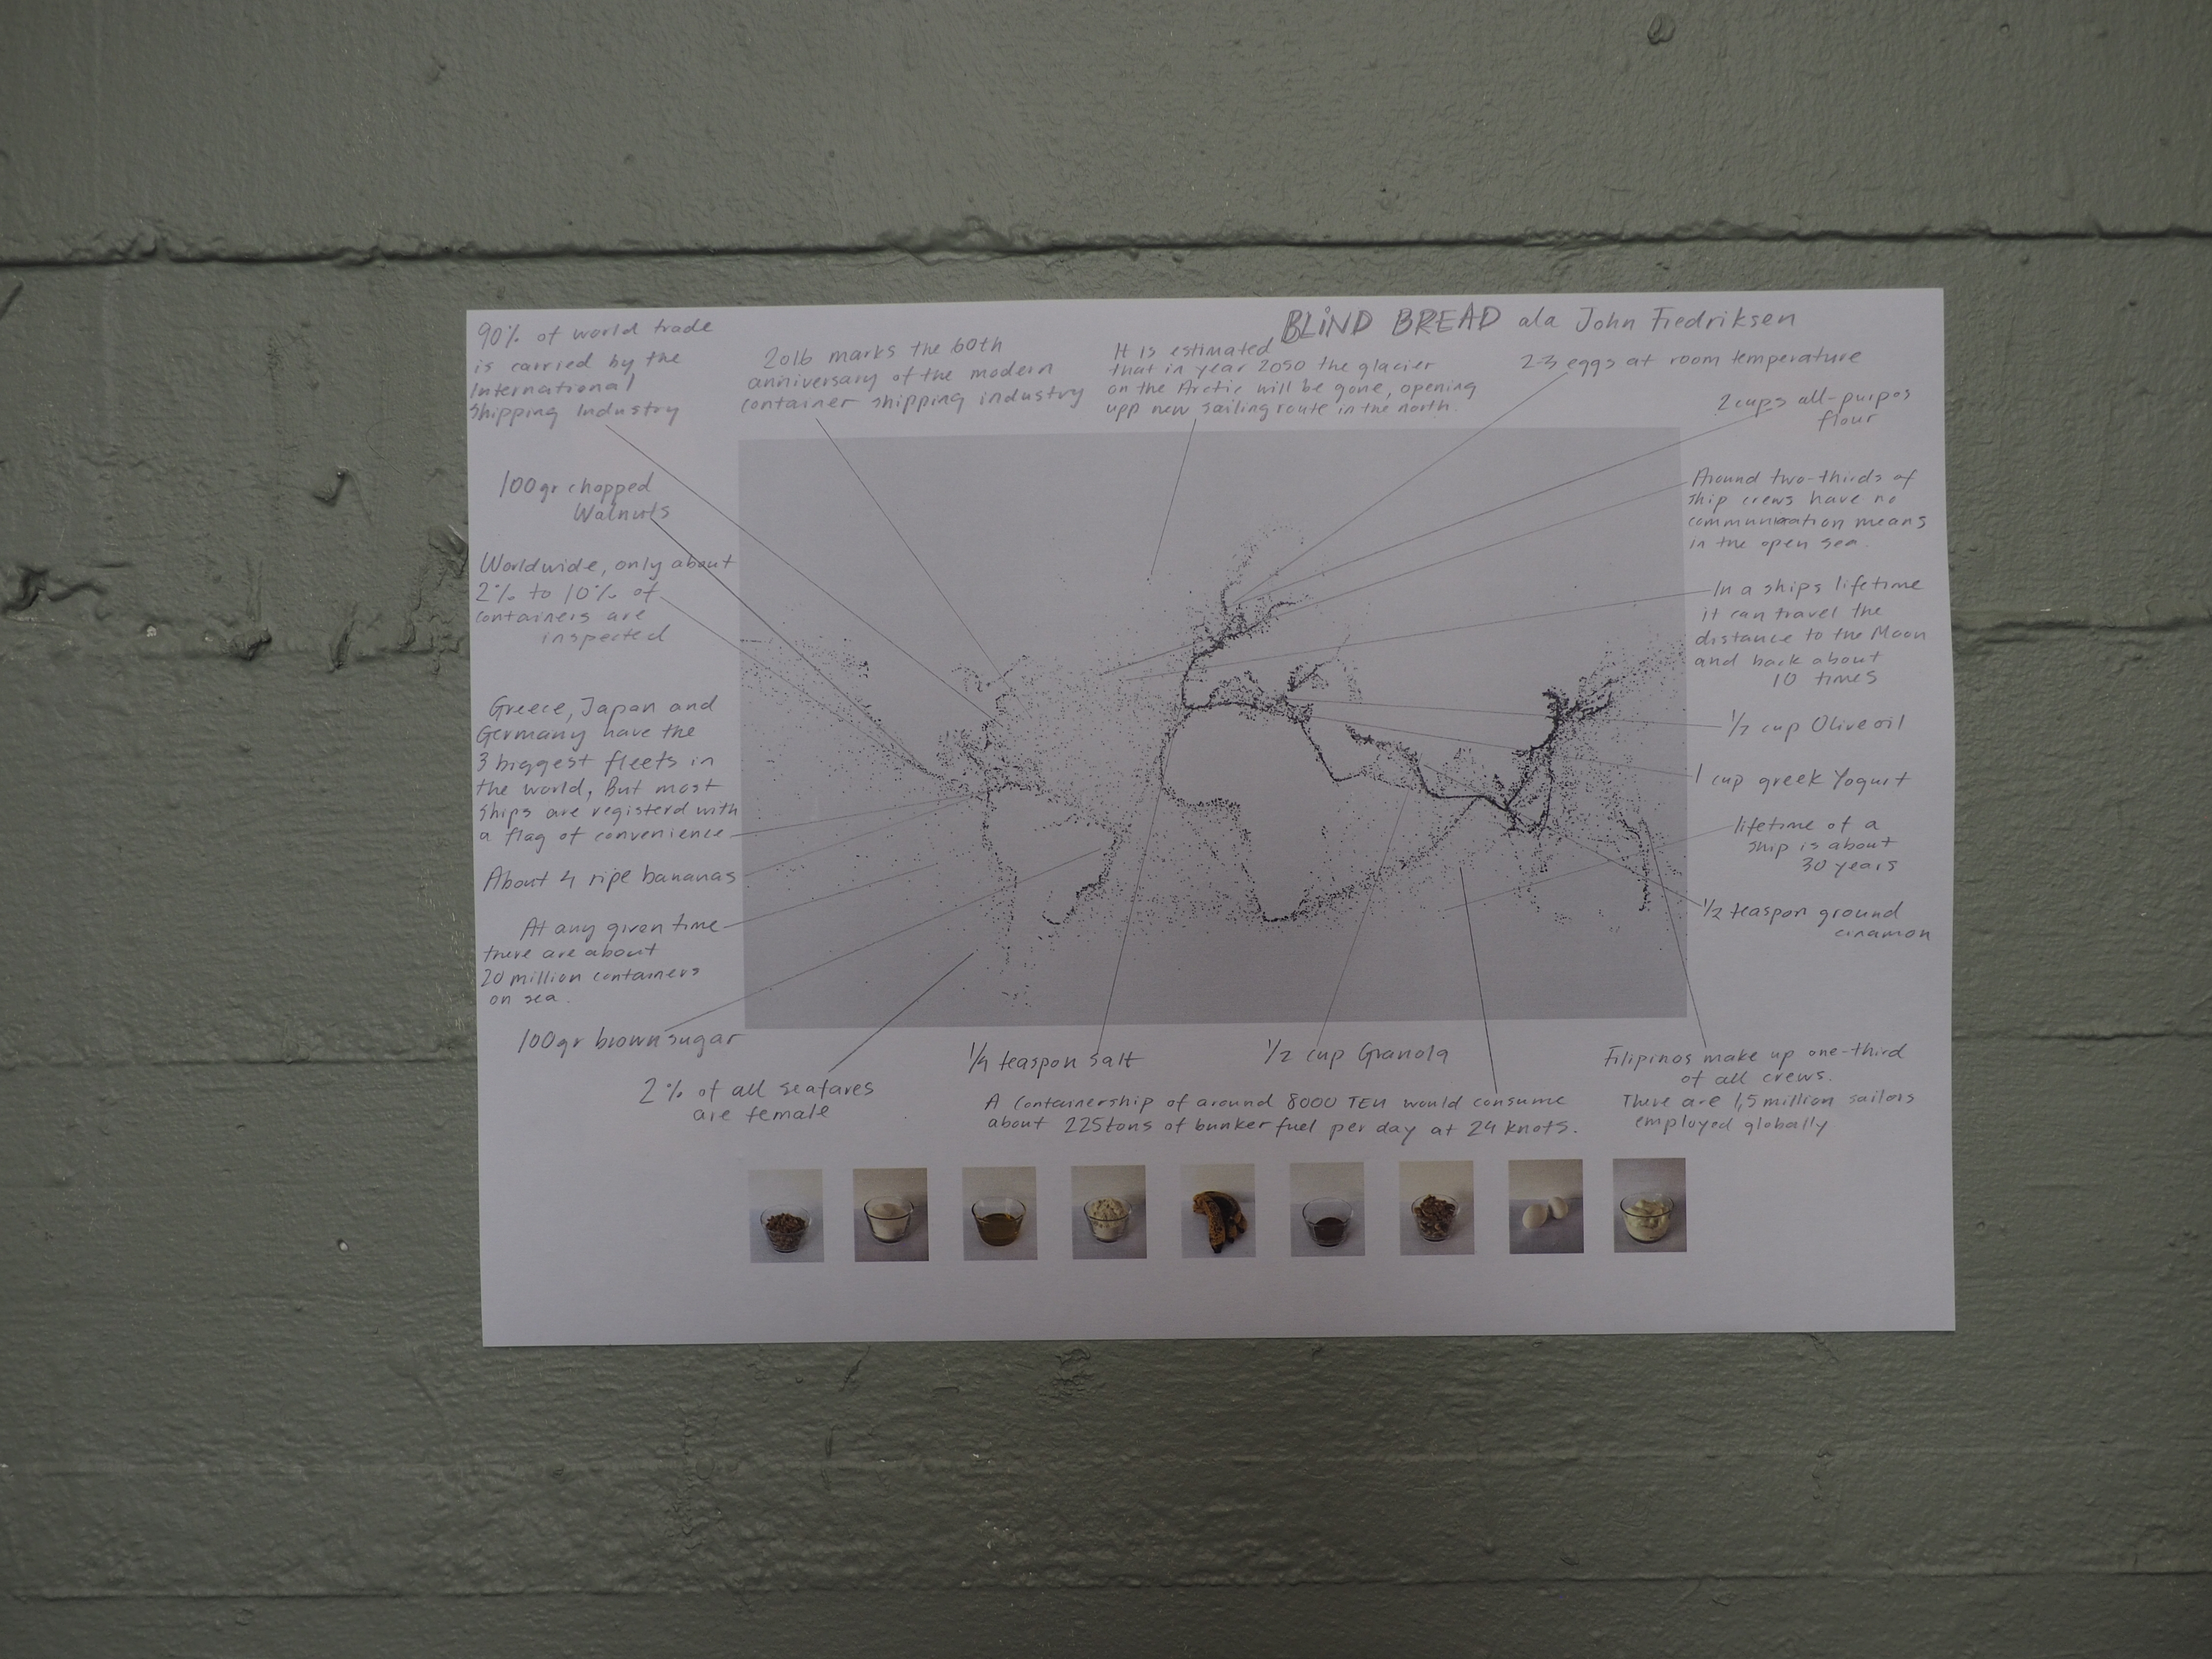 BLIND BREAD ala John Fredriksen
90% of world trade
is carried by the
International
Shipping Industry
2016 marks the 60th
anniversary of the modern
container shipping industry
It is estimated
that in year 2050 the glacier
on the Arctic will be gone, opening
upp new sailing route in the north.
2-3 eggs at room temperature
2 cups all-purpos
flour
100gr chopped
Walnuts
Worldwide, only about
2% to 10% of
containers are
inspected
Greece, Japan and
Germany have the
3 biggest fleets in
the world, But most
ships are registerd with
a flag of convenience
About 4 ripe bananas
At any given time
there are about
20 million containers
on sea.
100gr brown sugar
2% of all seafares
are female
1/4 teaspon salt
1/2 cup Granola
A Containership of around 8000 TEU would consume
about 225tons of bunker fuel per day at 24 knots.
Around two-thirds of
ship crews have no
communication means
in the open sea.
In a ships lifetime
it can travel the
distance to the Moon
and back about
10 times
1/2 cup Olive oil
1 cup greek Yogurt
lifetime of a
ship is about
30 years
1/2 teaspon ground
cinamon
Filipinos make up one-third
of all crews.
There are 1,5 million sailors
employed globally